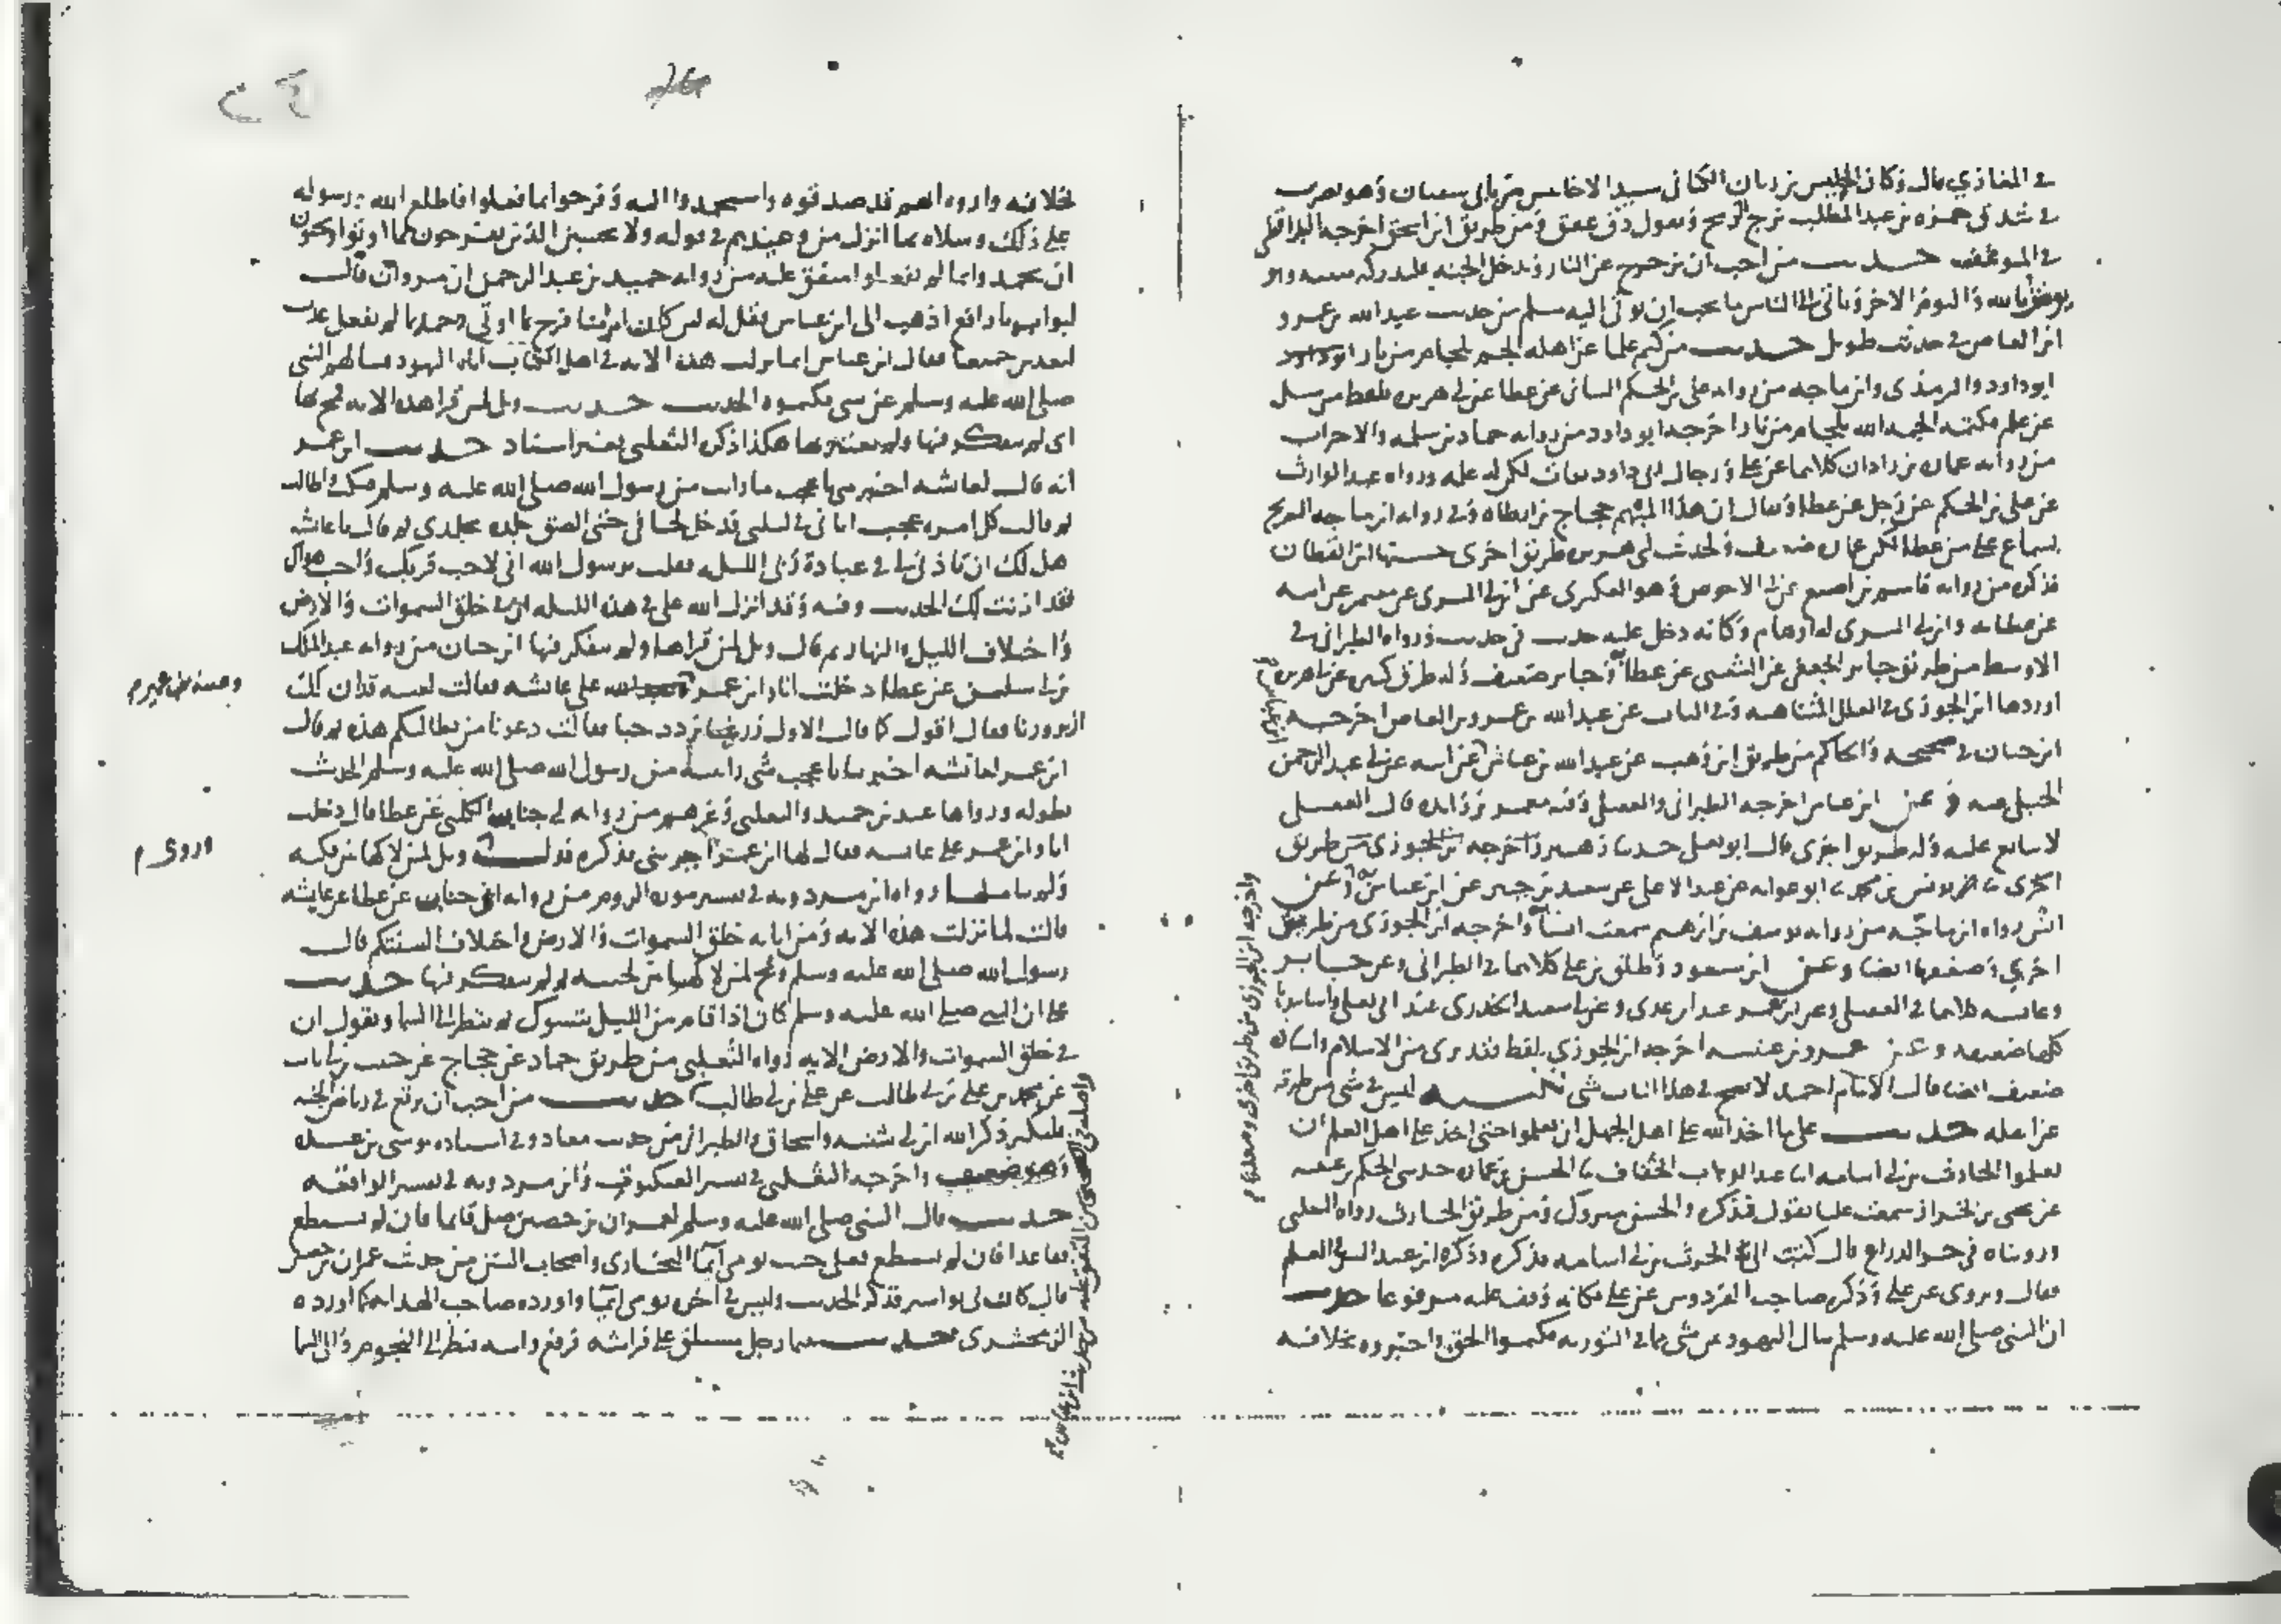 في المغازي قال وكان الحليس بن زبان الكناني سيد الاحابيش مر بابي سفيان وهو يضرب
في شدق حمزه بن عبد المطلب بزج الرمح ويقول ذق عقق ومن طريق ابن اسحق اخرجه الدارقطني
في الموتلف حديث من احب ان يزحزح عن النار ويدخل الجنه فلتدركه منيته وهو
يومن بالله واليوم الاخر وياتي الى الناس ما يحب ان يوتى اليه مسلم من حديث عبد الله بن عمرو
ابن العاص في حديث طويل حديث من كتم علما عن اهله الجم بلجام من نار
ابو داود والترمذي وابن ماجه من روايه علي بن الحكم البناني عن عطا عن ابي هريره بلفظ من سئل
عن علم فكتمه الجمه الله بلجام من نار اخرجه ابو داود من روايه حماد بن سلمه والاخران
من روايه عماره بن زاذان كلاهما عن علي ورجال ابي داود ثقات لكن له عله ورواه عبد الوارث
عن علي بن الحكم عن رجل عن عطا ويقال ان هذا المبهم حجاج بن ارطاه وفي روايه ابن ماجه التصريح
بسماع علي من عطا لكن عماره ضعيف ولحديث ابي هريره طريق اخرى حسنها ابن القطان
فذكره من روايه قاسم بن اصبغ عن ابي الاحوص وهو العكبري عن ابن ابي السري عن معتمر عن ابيه
عن عطا به وابن ابي السري له اوهام وكانه دخل عليه حديث في حديث ورواه الطبراني في
الاوسط من طريق جابر الجعفي عن الشعبي عن عطا وجابر ضعيف وله طرق كثيره عن ابي هريره
اوردها ابن الجوزي في العلل المتناهيه وفي الباب عن عبد الله بن عمرو بن العاص اخرجه
ابن حبان في صحيحه والحاكم من طريق ابن وهب عن عبد الله بن عياش عن ابيه عن ابي عبد الرحمن
الحبلي عنه وعن ابن عباس اخرجه الطبراني والعقيلي وفيه معمر بن زائده قال العقيلي
لا يتابع عليه وله طريق اخرى قال ابو يعلى حدثنا زهير واخرجه ابن الجوزي من طريق
اخرى يونس بن محمد ابو عوانه عن عبد الاعلى عن سعيد بن جبير عن ابن عباس وعن
انس رواه ابن ماجه من روايه يوسف بن ابراهيم سمعت انسا واخرجه ابن الجوزي من طريق
اخري وضعفها ايضا وعن ابن مسعود وطلق بن علي كلاهما في الطبراني وعن جابر
وعائشه كلاهما في العقيلي وعن ابن عمر عند ابن عدي وعن ابي سعيد الخدري عند ابي يعلى واسانيد
كلها ضعيفه وعن عمرو بن عبسه اخرجه ابن الجوزي بلفظ فقد بري من الاسلام واسناده
ضعيف ايضا قال الامام احمد لا يصح في هذا الباب شي تنبيه ليس في شي من طرقه
عن اهله حديث علي ما اخذ الله على اهل الجهل ان يتعلموا حتى اخذ على اهل العلم ان
يعلموا الحارث بن ابي اسامه عبد الوهاب الخفاف الحسن بن عماره حدثني الحكم بن عتيبه
عن يحيى بن الجزار سمعت عليا يقول فذكره والحسن متروك ومن طريق الحارث رواه الثعلبي
وقال ويروى عن علي وذكره صاحب الفردوس عن علي فكانه وقف عليه مرفوعا حديث
ان النبي صلى الله عليه وسلم سال اليهود عن شي مما في التوريه فكتموا الحق واخبروه بخلافه
واخرجه ابن الجوزي من طريق اخرى
بخلافه واروه انهم قد صدقوه واستحمدوا اليه وفرحوا بما فعلوا فاطلع الله رسوله
على ذلك وسلاه بما انزل من وعيدهم في قوله ولا تحسبن الذين يفرحون بما اوتوا ويحبون
ان يحمدوا بما لم يفعلوا متفق عليه من روايه حميد بن عبد الرحمن ان مروان قال
لبوابه يا رافع اذهب الى ابن عباس فقل له لئن كان كل امرئ منا فرح بما اوتي وحمد بما لم يفعل عذب
لنعذبن جميعا فقال ابن عباس انما نزلت هذه الايه في اهل الكتاب اتاه اليهود فسالهم النبي
صلى الله عليه وسلم عن شي فكتموه الحديث حديث ويل لمن قرا هذه الايه فمج بها
اى لم يتفكر فيها ولم يعتبر بها هكذا ذكره الثعلبي بغير اسناد حديث ابن عمر
انه قال لعائشه اخبريني باعجب ما رايت من رسول الله صلى الله عليه وسلم فبكت واطالت
ثم قالت كل امره عجب اتاني في ليلتي فدخل لحافي حتى الصق جلده بجلدي ثم قال يا عائشه
هل لك ان تاذني لي في عباده ربي الليله فقلت يرسول الله اني لاحب قربك واحب هواك
فقد اذنت لك الحديث وفيه وقد انزل الله علي في هذه الليله ان في خلق السموات والارض
واختلاف الليل والنهار ثم قال ويل لمن قراها ولم يتفكر فيها ابن حبان من روايه عبد الملك
بن ابي سليمن عن عطا دخلت انا وابن عمر على عائشه فقالت
ان تزورنا فقال اقول كما قال الاول زر غبا تزدد حبا فقالت دعونا من بطالتكم هذه ثم قال
ابن عمر لعائشه اخبرينا باعجب شي رايته من رسول الله صلى الله عليه وسلم الحديث
بطوله ورواها عبد بن حميد والثعلبي وغيرهم من روايه ابي جناب الكلبي عن عطا قال دخلت
انا وابن عمر على عائشه فقال لها ابن عمر اخبريني فذكره قوله ويل لمن لاكها بين فكيه
ولم يتاملها رواه ابن مردويه في تفسير سوره الروم من روايه ابي جناب عن عطا عن عايشه
قالت لما نزلت هذه الايه ومن اياته خلق السموات والارض واختلاف السنتكم قال
رسول الله صلى الله عليه وسلم ويح لمن لاكها بين لحييه ثم لم يتفكر فيها حديث
علي ان النبي صلى الله عليه وسلم كان اذا قام من الليل يتسوك ثم ينظر الى السما ويقول ان
في خلق السموات والارض الايه رواه الثعلبي من طريق حماد عن حجاج عن حبيب بن ابي ثابت
عن محمد بن علي بن ابي طالب عن علي بن ابي طالب حديث من احب ان يرتع في رياض الجنه
فليكثر ذكر الله ابن ابي شيبه واسحاق والطبراني من حديث معاذ وفي اسناده موسى بن عبيده
وهو ضعيف واخرجه الثعلبي في تفسير العنكبوت وابن مردويه في تفسير الواقعه
حديث قال النبي صلى الله عليه وسلم لعمران بن حصين صل قائما فان لم تستطع
فقاعدا فان لم تستطع فعلى جنب تومي ايما البخاري واصحاب السنن من حديث عمران بن حصين
قال كانت بي بواسير فذكر الحديث وليس في اخره يومي ايما واورده صاحب الهدايه كما اورده
الزمخشري حديث بينما رجل مستلق على فراشه فرفع راسه فنظر الى النجوم والى السما
وروى